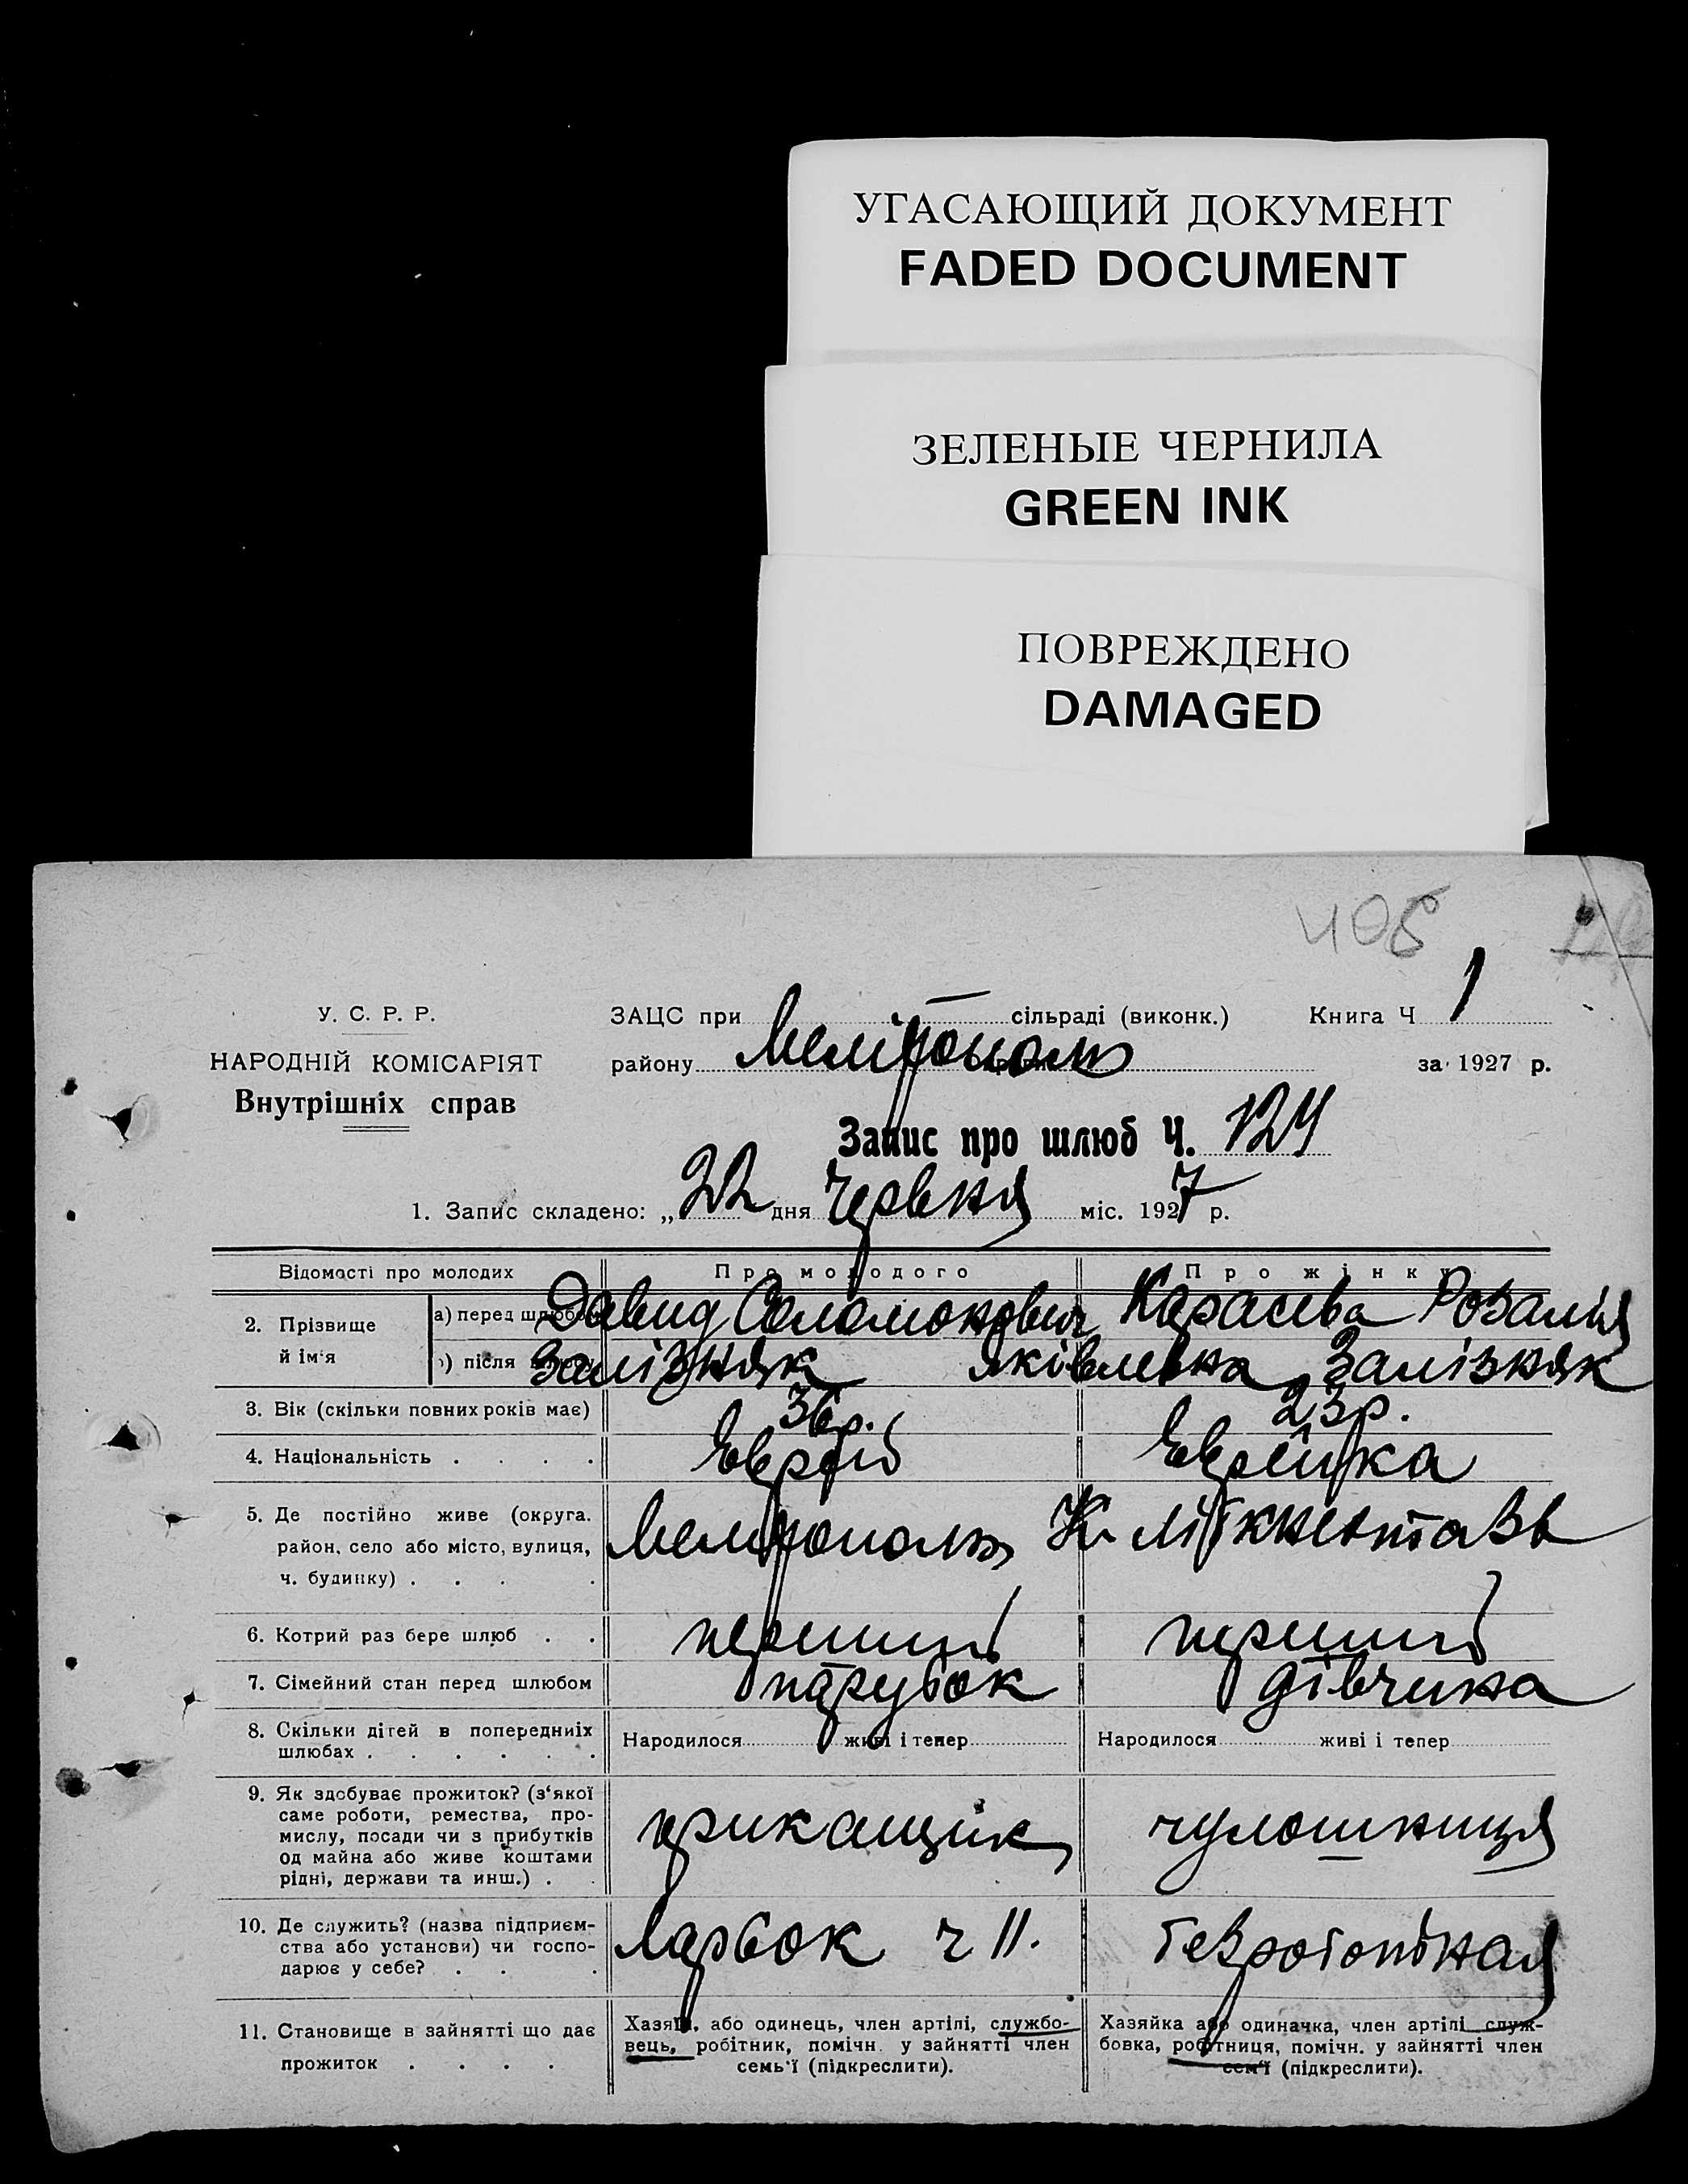 УГАСАЮЩИЙ ДОКУМЕНТ
FADED DOCUMENT
ЗЕЛЕНЫЕ ЧЕРНИЛА
GREEN INK
ПОВРЕЖДЕНО
DAMAGED
У. С. Р. Р.
НАРОДНІЙ КОМІСАРІЯТ
Внутрішніх справ
ЗАЦС при — сільраді (виконк.) Книга Ч 1
району Мелітополь за 1927 р.
Запис про шлюб Ч. 124
1. Запис складено: „22 дня Червня міс. 1927 р.
Відомості про молодих Про молодого Про жінку
2. Прізвище й ім'я
а) перед шлюбом Давид Соломонович Карасева Розалія
б) після Залізняк Яківлевна Залізняк
3. Вік (скільки повних років має) 36 р. 23 р.
4. Національність . . . . Єврей Єврейка
5. Де постійно живе (округа.
район, село або місто, вулиця,
ч. будинку) . . . .
Мелітополь К. Лібкнехта
6. Котрий раз бере шлюб . . перший перший
7. Сімейний стан перед шлюбом парубок дівчина
8. Скільки дітей в попередніх
шлюбах . . . . . .
Народилося живі і тепер Народилося живі і тепер
9. Як здобуває прожиток? (з'якої
саме роботи, ремества, про-
мислу, посади чи з прибутків
од майна або живе коштами
рідні, держави та инш.) . .
прикащик чулошниця
10. Де служить? (назва підприєм-
ства або установи) чи госпо-
дарює у себе? . . .
Ларьок ч 11. безроботная
11. Становище в зайнятті що дає
прожиток . . . .
Хазяїн, або одинець, член артілі, службо-
вець, робітник, помічн. у зайнятті член
семь'ї (підкреслити).
Хазяйка або одиначка, член артілі служ-
бовка, робітниця, помічн. у зайнятті член
сем'ї (підкреслити).